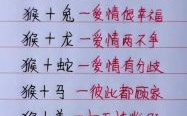 猴+兔—爱情很幸福
猴+龙—爱情两不争
猴+蛇—爱情有分歧
猴+马—彼此都顾家